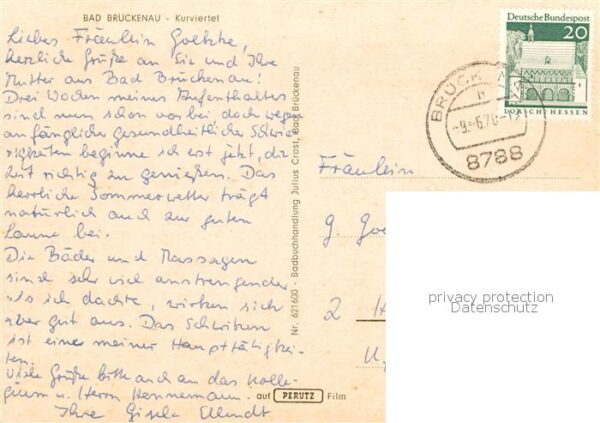 BAD BRÜCKENAU - Kurviertel
Liebes Fräulein Goethe,
herzliche Grüße an Sie und Ihre
Mutter aus Bad Brückenau!
Drei Wochen meines Aufenthaltes
sind nun schon vorbei, doch wegen
anfänglicher gesundheitlicher Schwie-
rigkeiten beginne ich erst jetzt, die
Zeit richtig zu genießen. Das
herrliche Sommerwetter trägt
natürlich auch zur guten
Laune bei.
Die Bäder und Massagen
sind sehr viel anstrengender
als ich dachte, wirken sich
aber gut aus. Das Schwitzen
ist eine meiner Haupttätigkei-
ten.
Viele Grüße bitte auch an das Kolle-
gium u. Herrn Hennemann.
Ihre Gisela
auf PERUTZ Film
Nr. 621600 - Badbuchhandlung Julius Crost, Bad Brückenau
Deutsche Bundespost
20
LORSCH/HESSEN
BRÜCKENAU
-9.-6.70-
8788
Fräulein
G.
2
privacy protection
Datenschutz